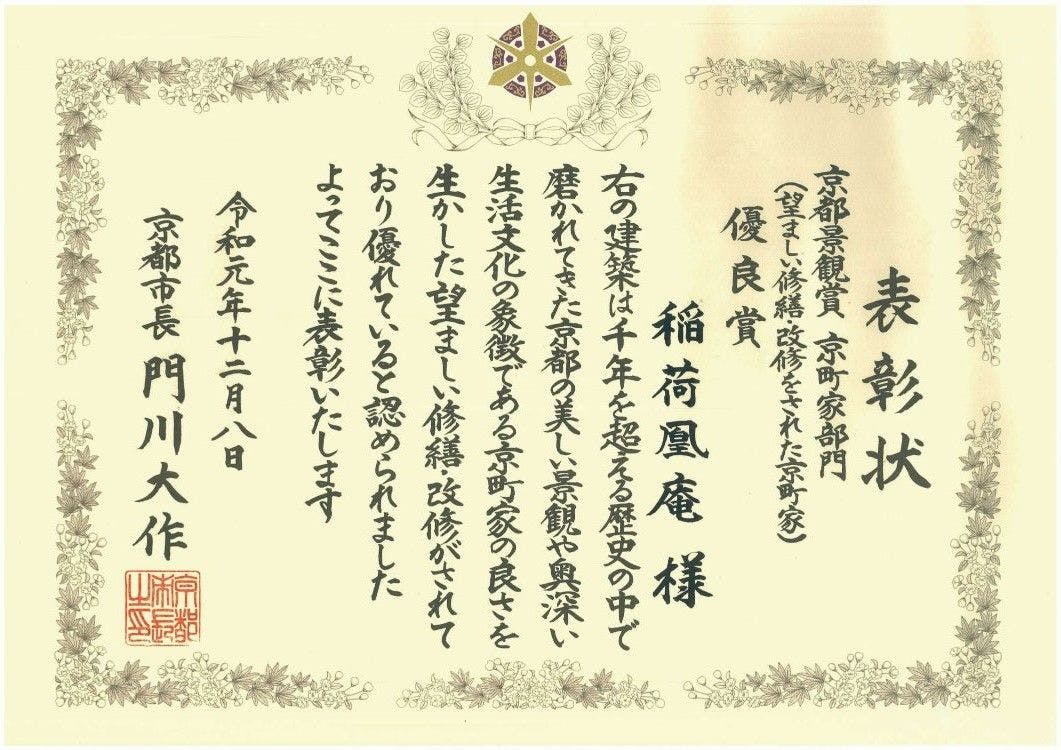 表彰状
京都景観賞 京町家部門
(望ましい修繕・改修をされた京町家)
優良賞
稲荷凰庵 様
右の建築は千年を超える歴史の中で
磨かれてきた京都の美しい景観や奥深い
生活文化の象徴である京町家の良さを
生かした望ましい修繕・改修がされて
おり優れていると認められました
よってここに表彰いたします
令和元年十二月八日
京都市長 門川大作
京都
市長
之印